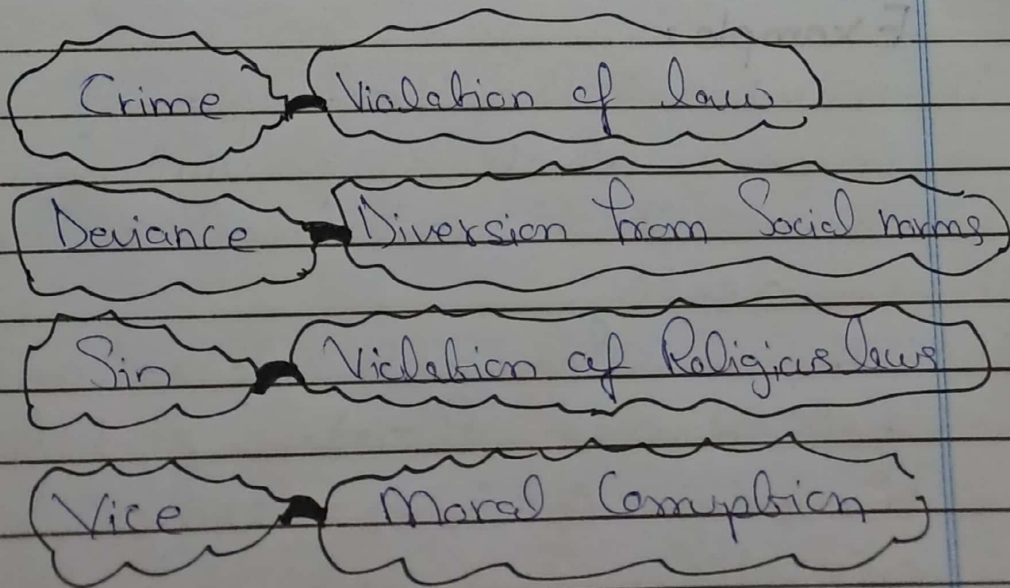 Crime Violation of law
Deviance Diversion from Social norms
Sin Violation of Religious laws
Vice Moral Corruption